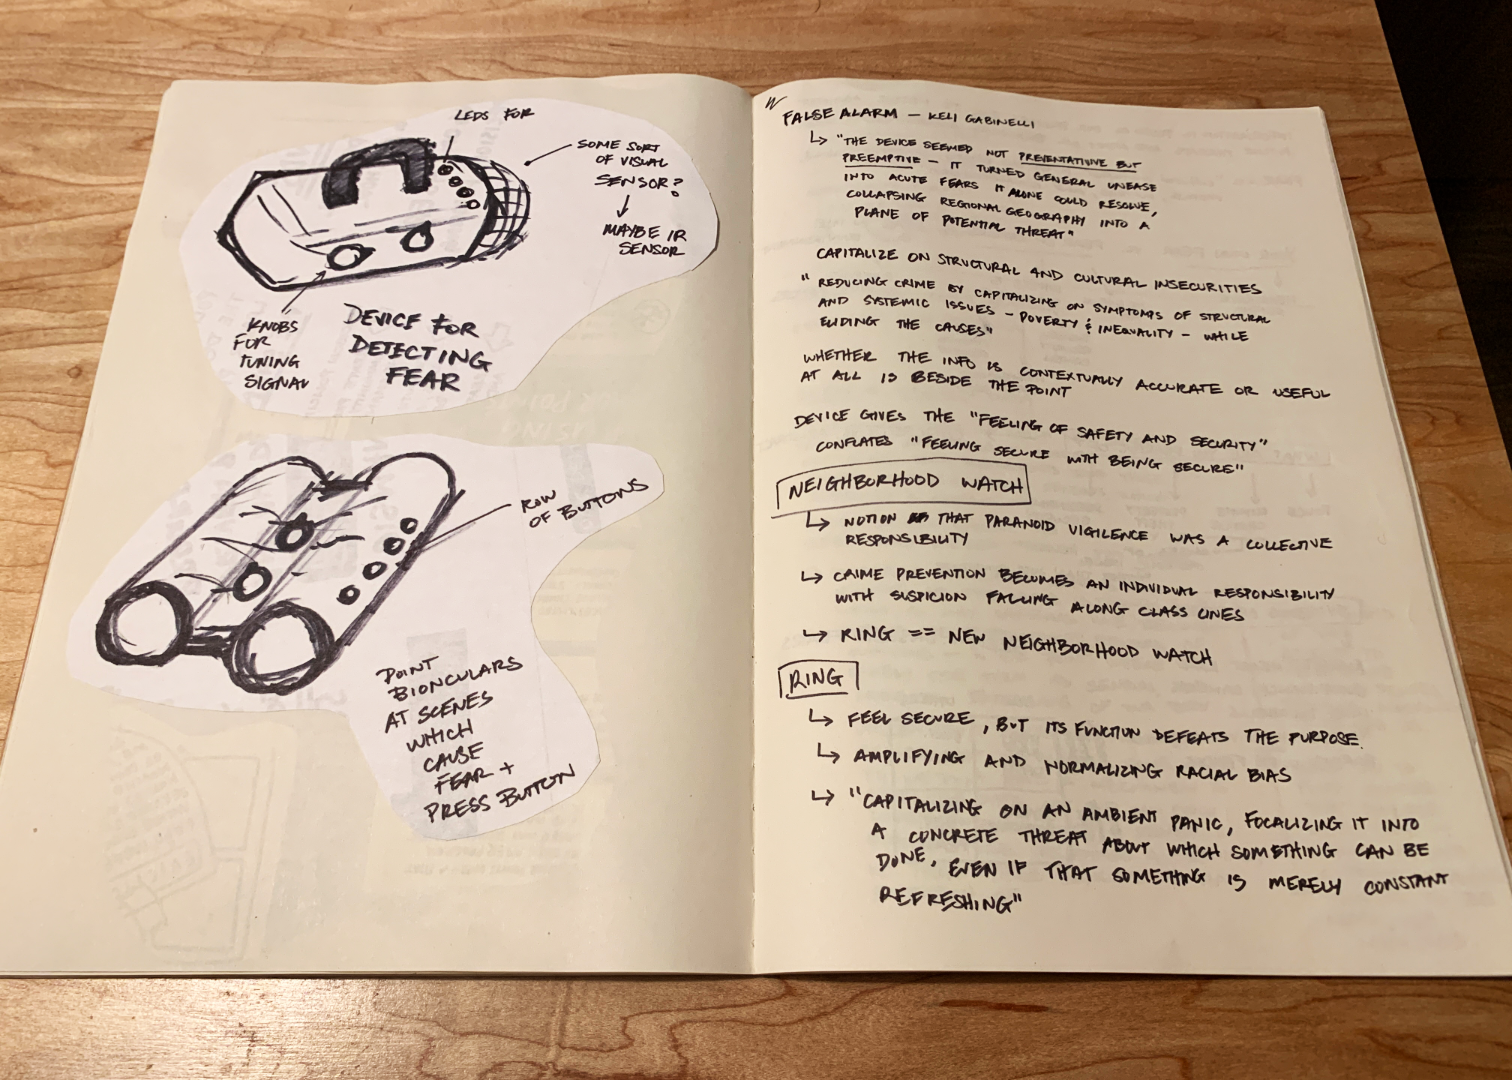 LEDS FOR
SOME SORT
OF VISUAL
SENSOR?
MAYBE IR
SENSOR
KNOBS
FOR
TUNING
SIGNAL
DEVICE FOR
DETECTING
FEAR
ROW
OF BUTTONS
POINT
BIONCULARS
AT SCENES
WHICH
CAUSE
FEAR +
PRESS BUTTON
FALSE ALARM — KELI GABINELLI
↳ "THE DEVICE SEEMED NOT PREVENTATIVE BUT
PREEMPTIVE — IT TURNED GENERAL UNEASE
INTO ACUTE FEARS IT ALONE COULD RESOLVE,
COLLAPSING REGIONAL GEOGRAPHY INTO A
PLANE OF POTENTIAL THREAT"
CAPITALIZE ON STRUCTURAL AND CULTURAL INSECURITIES
"REDUCING CRIME BY CAPITALIZING ON SYMPTOMS OF STRUCTURAL
AND SYSTEMIC ISSUES — POVERTY & INEQUALITY — WHILE
ELIDING THE CAUSES"
WHETHER THE INFO IS CONTEXTUALLY ACCURATE OR USEFUL
AT ALL IS BESIDE THE POINT
DEVICE GIVES THE "FEELING OF SAFETY AND SECURITY"
CONFLATES "FEELING SECURE WITH BEING SECURE"
NEIGHBORHOOD WATCH
↳ NOTION THAT PARANOID VIGILENCE WAS A COLLECTIVE
RESPONSIBILITY
↳ CRIME PREVENTION BECOMES AN INDIVIDUAL RESPONSIBILITY
WITH SUSPICION FALLING ALONG CLASS LINES
↳ RING == NEW NEIGHBORHOOD WATCH
RING
↳ FEEL SECURE, BUT ITS FUNCTION DEFEATS THE PURPOSE.
↳ AMPLIFYING AND NORMALIZING RACIAL BIAS
↳ "CAPITALIZING ON AN AMBIENT PANIC, FOCALIZING IT INTO
A CONCRETE THREAT ABOUT WHICH SOMETHING CAN BE
DONE, EVEN IF THAT SOMETHING IS MERELY CONSTANT
REFRESHING"